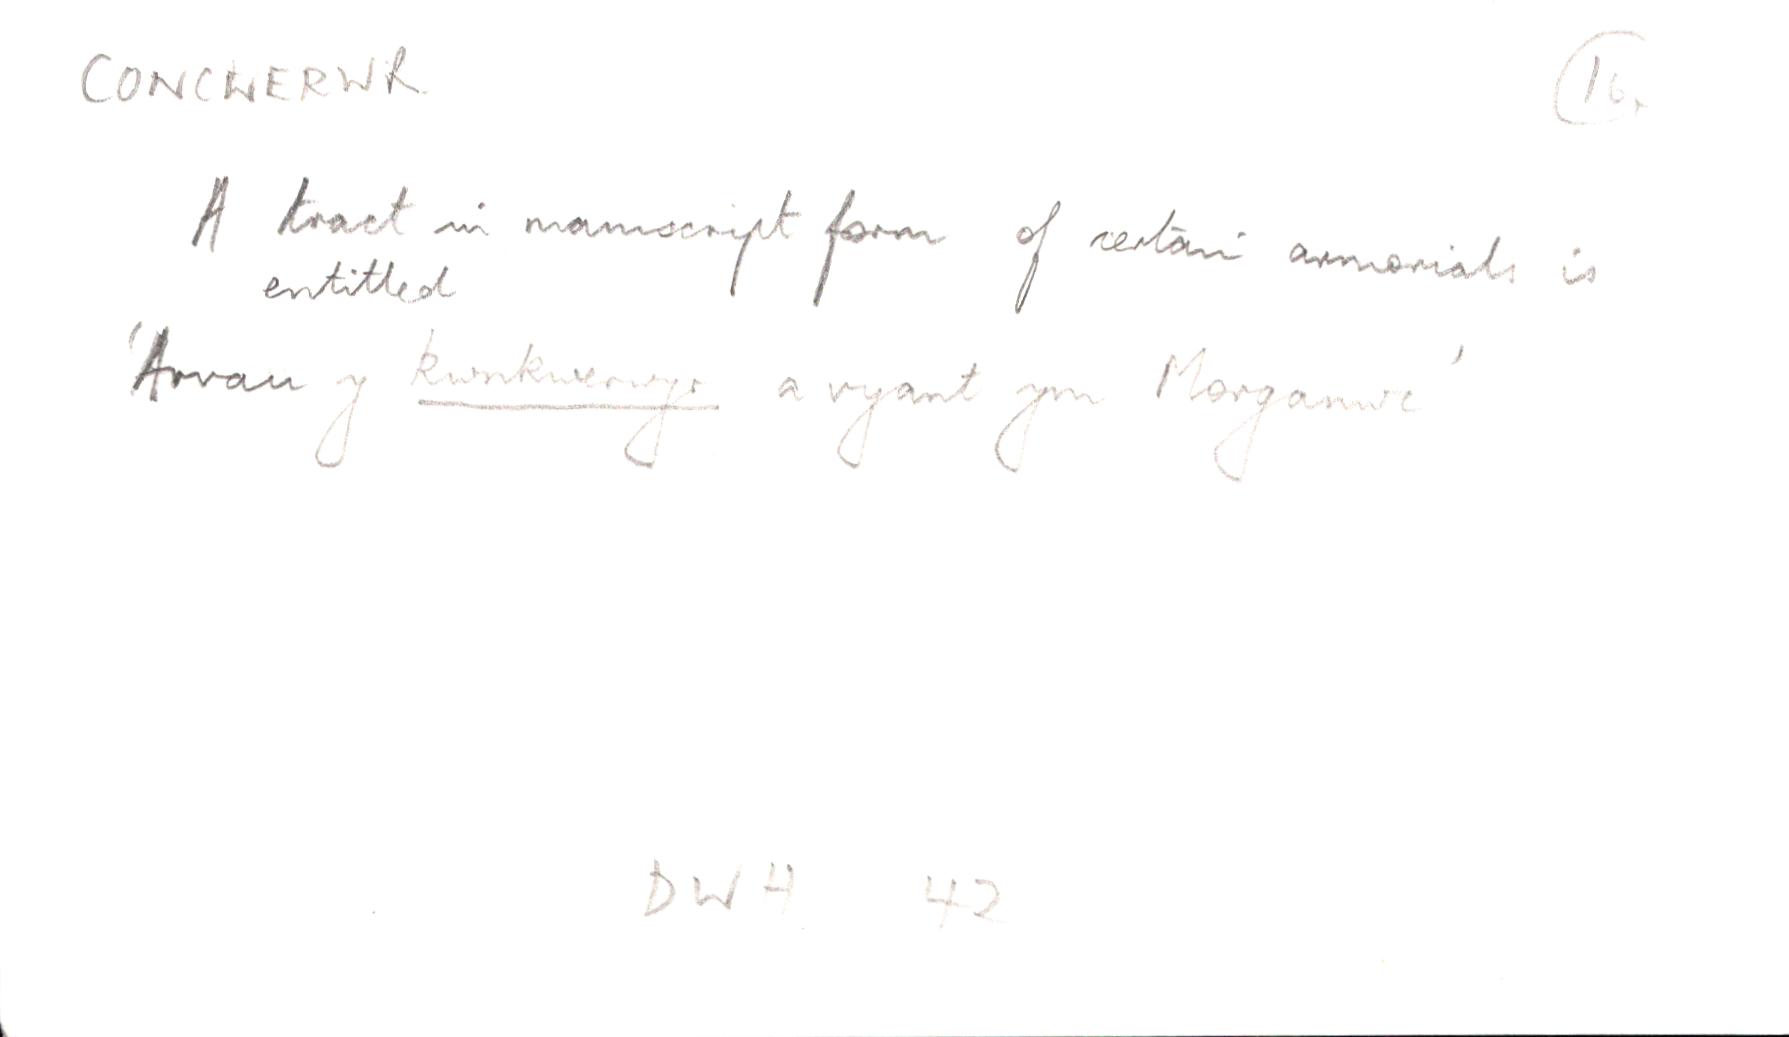 CONCWERWR
16.
A tract in manuscript form of certain armorials is
entitled
'Arvau y kwnkwerwyr a vyant ym Morganwc'
DWH 42